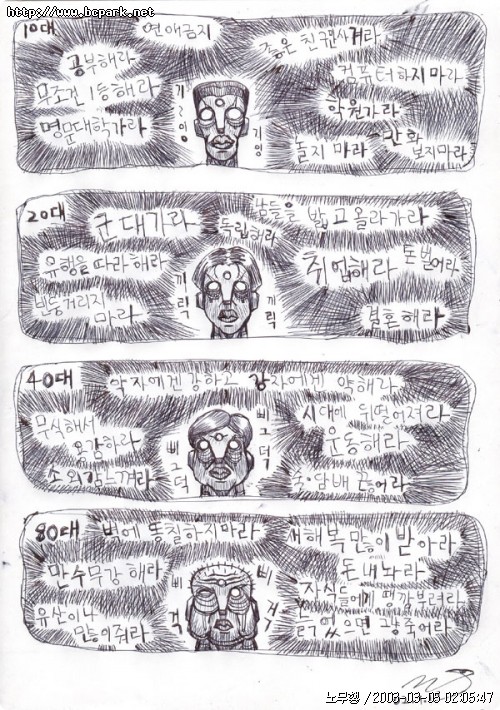 http://www.bcpark.net
10대
연애금지
좋은 친구만사겨라
공부해라
컴퓨터하지마라
무조건 1등해라
학원가라
명문대학가라
놀지 마라
만화
보지마라
기잉
20대
군대가라
남들을 밟고 올라가라
독립해라
유행을 따라해라
취업해라
돈벌어라
빈둥거리지
마라
끼릭
끼릭
결혼해라
40대
약자에겐 강하고 강자에게 약해라
시대에 뒤떨어져라
무식해서
용감하라
운동해라
삐그덕
삐그덕
소외감느껴라
술·담배 끊어라
80대
벽에 똥칠하지마라
새해복많이받아라
만수무강해라
돈내놔라
유산이나
많이줘라
삐걱
삐걱
늙었으면 그냥죽어라
노무행 / 2003-03-05 02:05:47